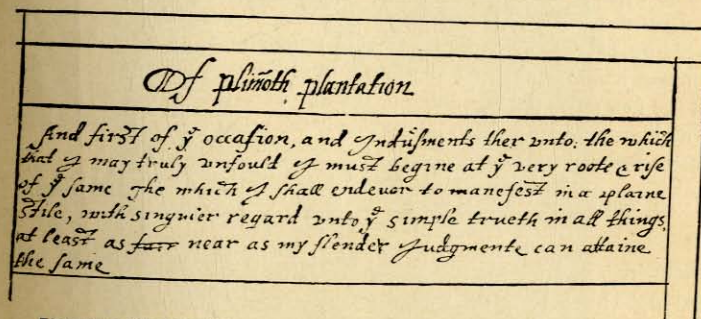 Of plim̃oth plantation
And first of yͤ occasion, and Indusments ther vnto; the which
that I may truly vnfould, I must begine at yͤ very roote & rise
of yͤ same The which I shall endeuor to manefest in a plaine
stile, with singuler regard vnto yͤ simple trueth in all things,
at least as farr near as my slender Judgmente can attaine
the same